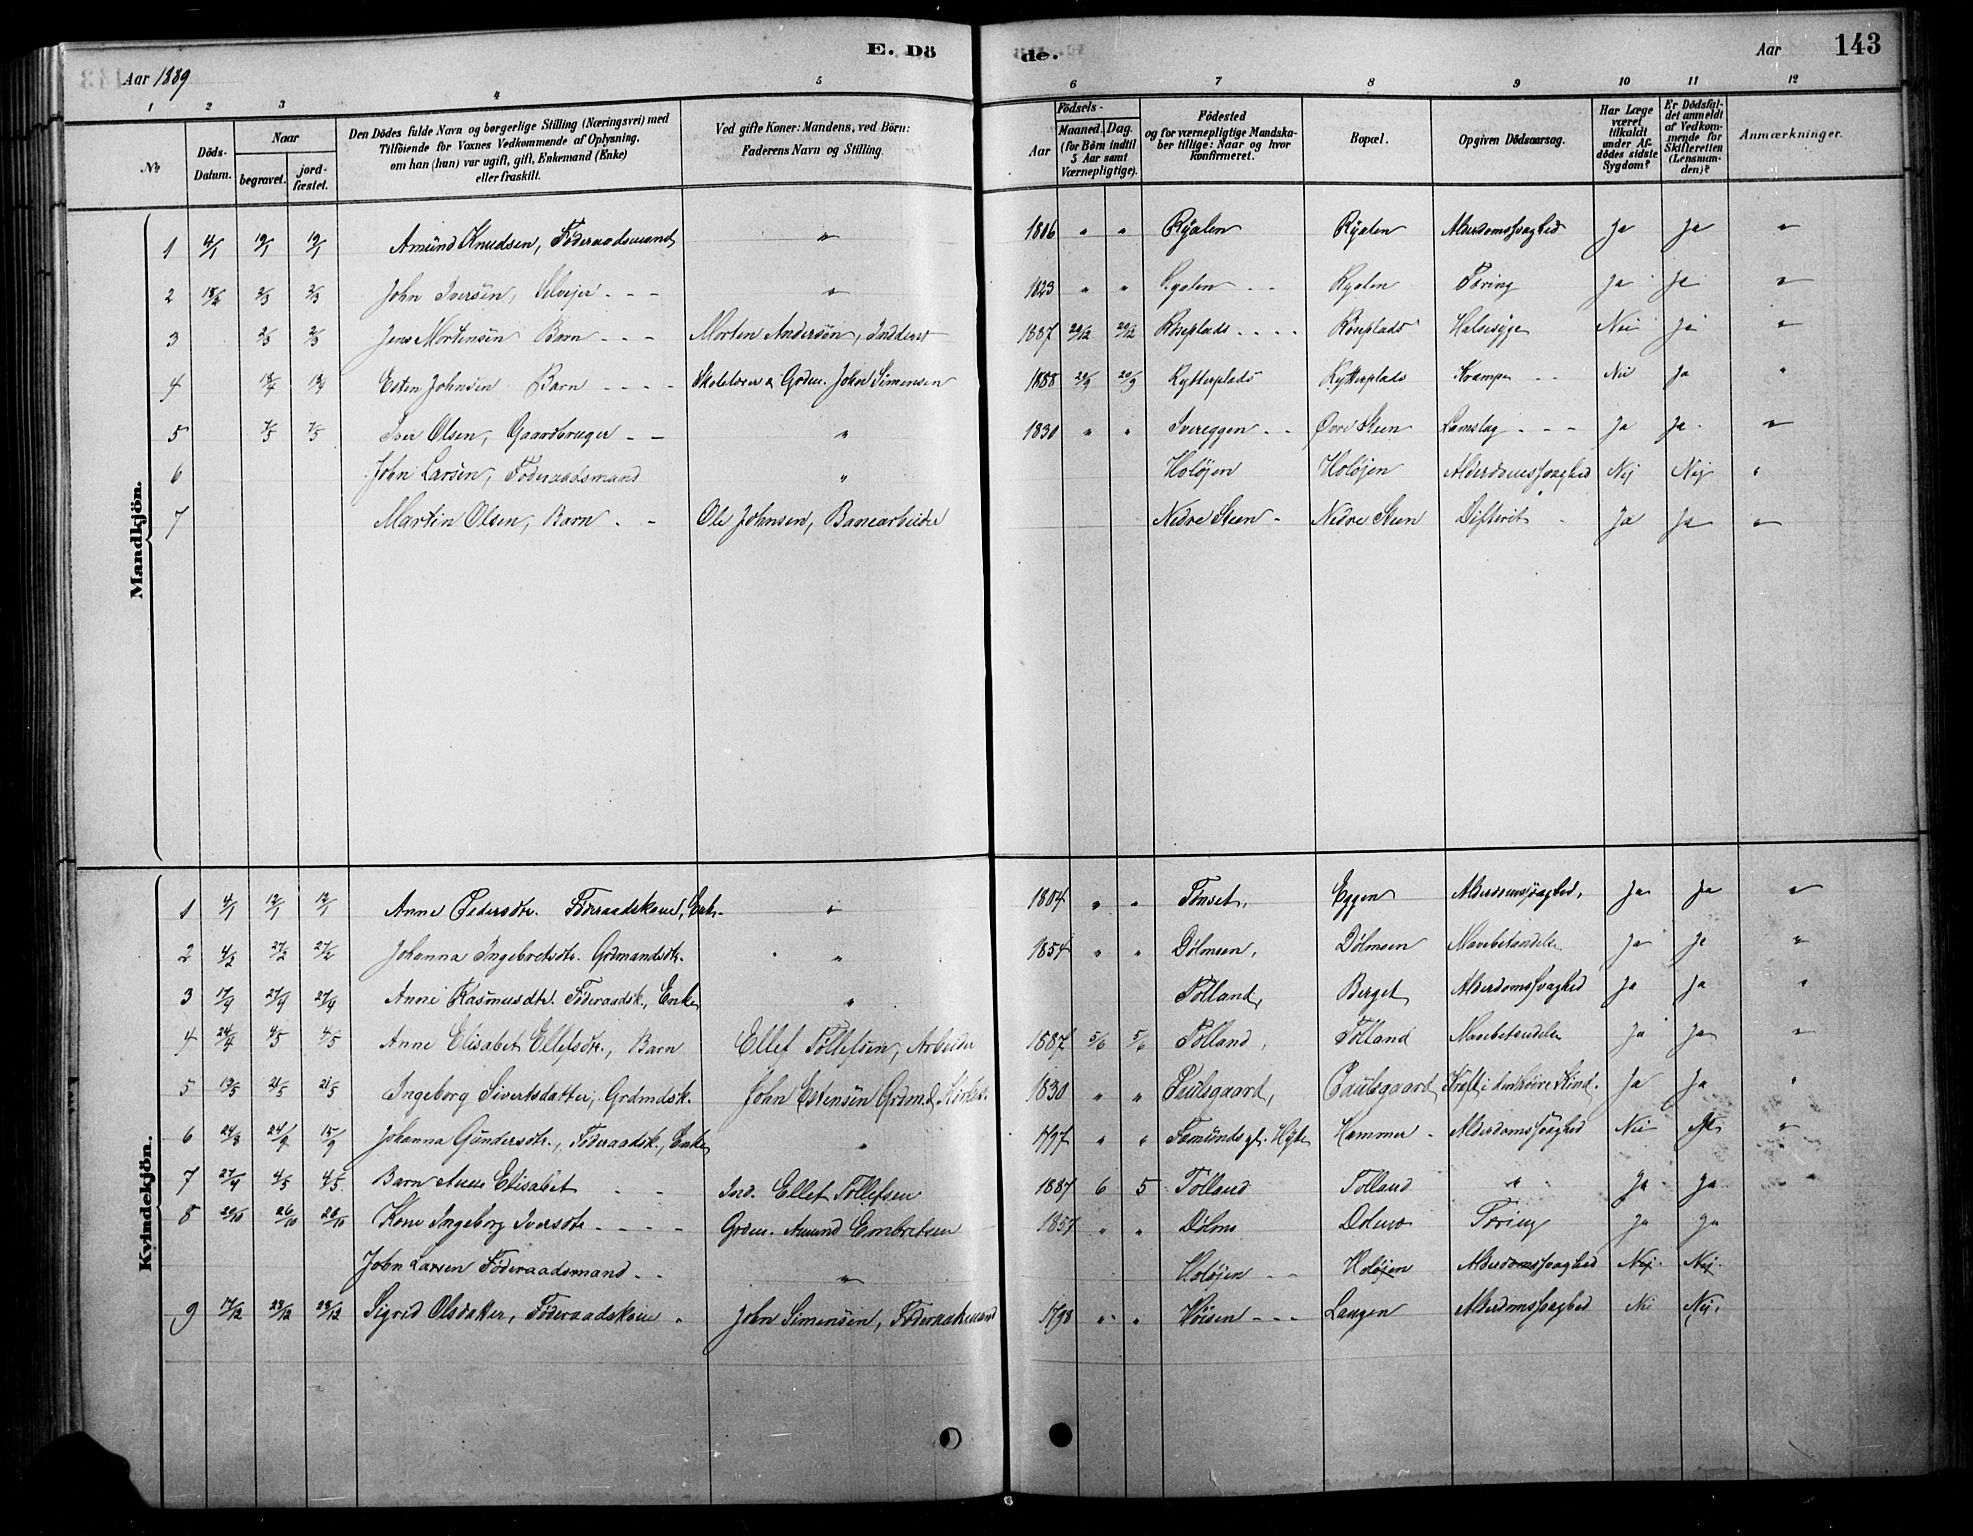 E. Dö de.
Aar 1889
Aar 143
1 2 3 4 5 6 7 8 9 10 11 12
No
Döds-Datum.
Naar
begravet.
jord-fæstet.
Den Dödes fulde Navn og borgerlige Stilling (Næringsvei) med Tilföiende for Voxnes Vedkommende af Oplysning, om han (hun) var ugift, gift, Enkemand (Enke) eller fraskilt.
Ved gifte Koner: Mandens, ved Börn: Faderens Navn og Stilling.
Födsels-
Aar
Maaned. Dag.
(for Börn indtil 5 Aar samt Værnepligtige).
Födested og for værnepligtige Mandskaber tillige: Naar og hvor konfirmeret.
Bopæl.
Opgiven Dödsaarsag.
Har Læge været tilkaldt under Afdödes sidste Sygdom?
Er Dödsfaldet anmeldt af Vedkommende for Skifteretten (Lensmanden)?
Anmærkninger.
Mandkjön.
1 4/1 19/1 19/1 Amund Knudsen, Föderaadsmand " 1806 " " Ryalen Ryalen Alderdomssvaghed Ja Ja "
2 2/3 2/3 John Iversen, Selvejer " 1823 " " Ryalen Ryalen Tæring Ja Ja "
3 2/3 2/3 Jens Mortensen Barn Morten Andersen, Inderst 1887 29/12 29/12 Röseplads Röseplads Halssyge Nei Ja "
4 Esten Johnsen Barn Skolelærer & Grdm. John Simensen 1888 20/9 20/9 Rytterplads Rytterplads Krampe Nei Ja "
5 7/5 7/5 Iver Olsen, Gaardbruger " 1830 " " Svereggen Övre Steen Lamslag Ja Ja "
6 John Larsen, Föderaadsmand " Holöjen Holöjen Alderdomssvaghed Nej Nej "
7 Martin Olsen, Barn Ole Johnsen, Banearbeider Nedre Steen Nedre Steen Difterit Ja Ja "
Kvindekjön.
1 4/1 12/1 12/1 Anne Pedersdtr. Föderaadskone, Enke " 1804 " " Tönset, Eggen Alderdomssvaghed, Ja Ja "
2 4/2 27/2 27/2 Johanna Ingebretsdtr. Grdmandsdtr. " 1854 " " Dölmoen, Dölmoen Mavebetændelse Ja Ja "
3 17/4 27/4 27/4 Anne Rasmusdtr. Föderaadsk., Enke " Tolland, Berget Alderdomssvaghed Ja Ja "
4 24/4 4/5 4/5 Anne Elisabet Ellefsdtr., Barn Ellef Tollefsen, Arbeider 1887 5/6 5/6 Tolland, Tolland Mavebetændelse Ja Ja "
5 13/5 21/5 21/5 Ingeborg Sivertsdatter, Grdmdsk. John Estensen Grdmd. 1830 " " Paulsgaard, Paulsgaard Kræft i den höire Kind. Ja Ja "
6 24/8 15/9 Johanna Gundersdtr., Föderaadsk., Enke " 1797 " " Hammer Alderdomssvaghed Nei "
7 27/4 4/5 4/5 Barn Anne Elisabet Ind. Ellef Tollefsen 1887 6 5 Tolland Tolland " Ja Ja "
8 20/10 26/10 Kone Ingeborg Iversdtr Grdm. Amund Embretsen 1857 " " Dölmo Dolmo Tæring Ja Ja
John Larsen Föderaadsmand " Holöjen Holöjen Alderdomssvaghed Nej. Nej.
9 17/12 28/12 28/12 Sigrid Olsdatter, Föderaadskone John Simensen, Föderaadsmand 1798 " " Höisen Langen Alderdomssvaghed Nei Nei.